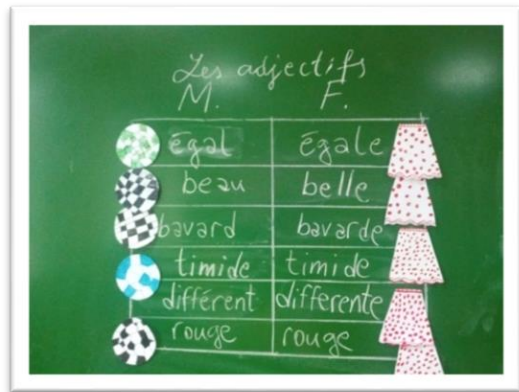 Les adjectifs
M. F.
égal égale
beau belle
bavard bavarde
timide timide
différent differente
rouge rouge